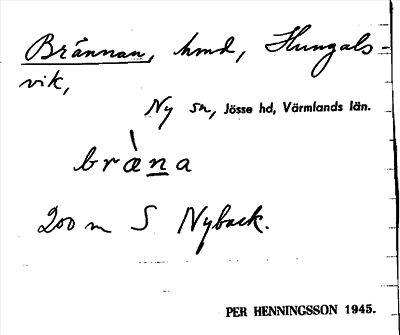 Brännan, hmd, Hungals-
vik,
Ny sn, Jösse hd, Värmlands län.
bræ̀na
200 m S Nyback.
PER HENNINGSSON 1945.